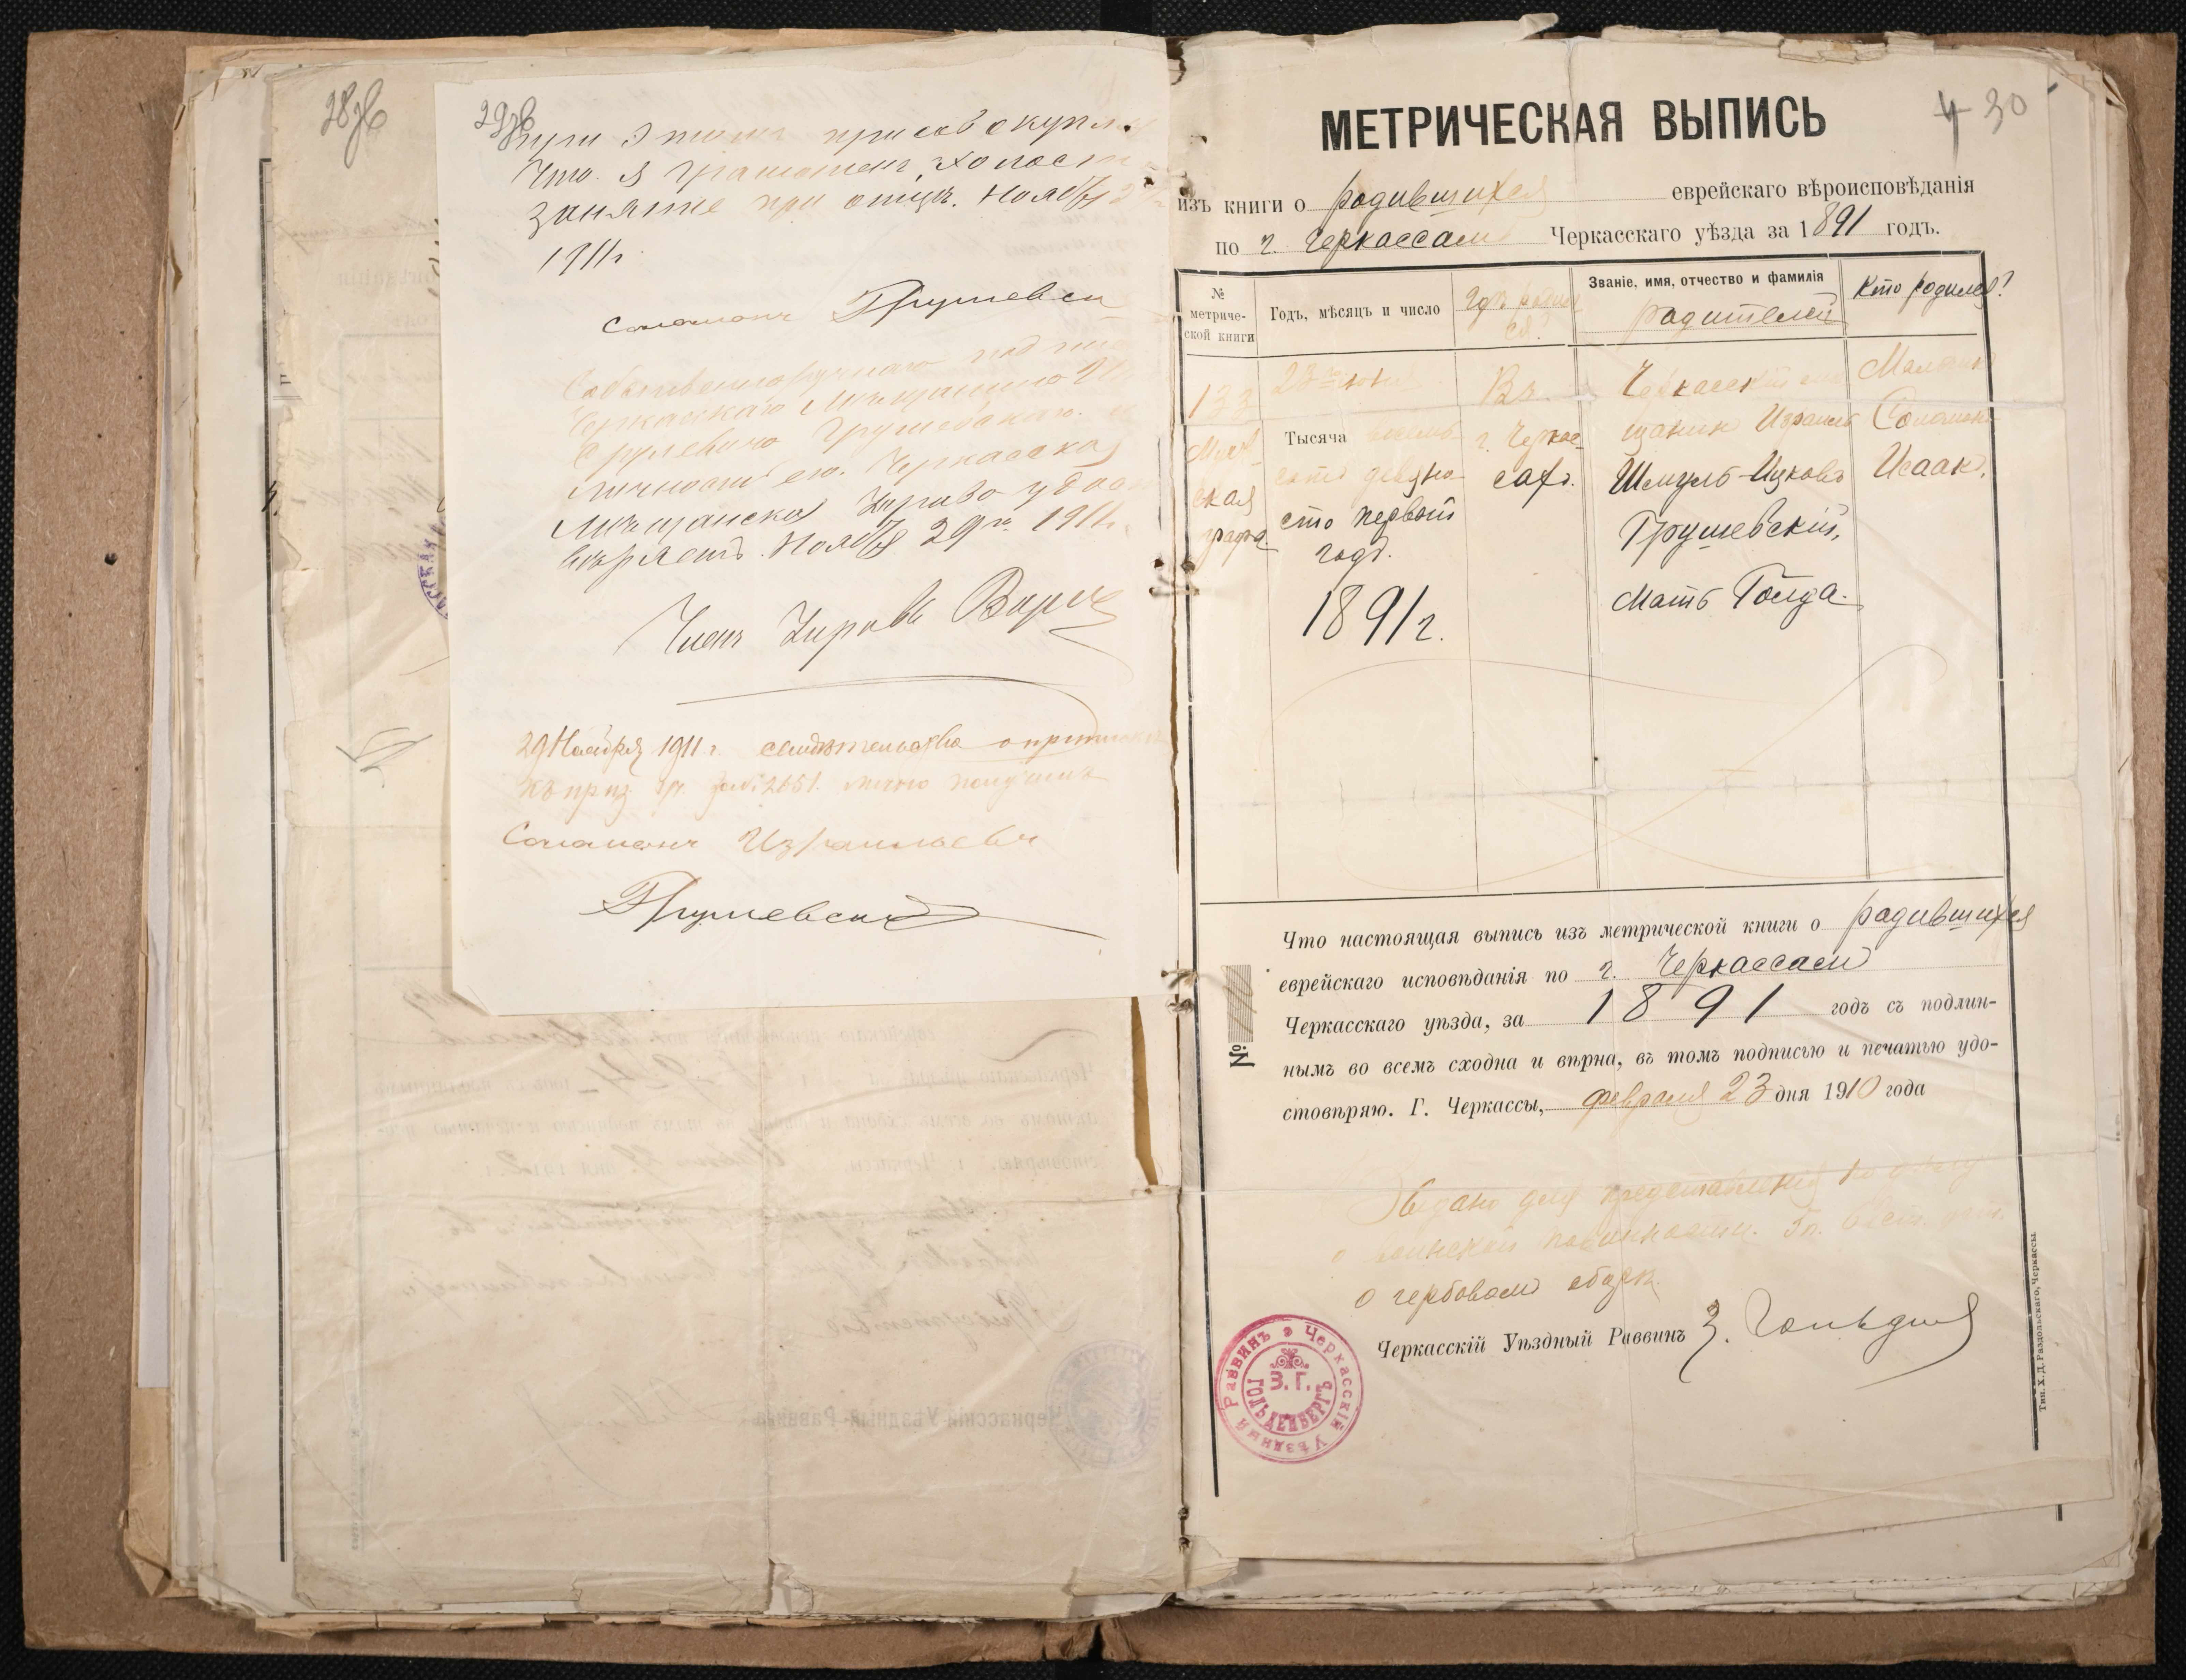 28зв
29зв
при этомъ присовокупляю
что я грамотенъ, холостъ
занятие при отцѣ. Ноября 29
1911 г.
Соломонъ Грушевск
Собственноручную под
Черкасскаго мѣщанина
Срулевича Грушевскаго и
личность его Черкасская
Мѣщанская Управа удос
вѣряетъ. Ноября 29 дня 1911 г.
Членъ Управы
29 Ноября 1911 г. свидѣтельство о припискѣ
къ приз. уч. за № 2651 лично получилъ
Соломонъ Израилевъ
Грушевский
4 30
МЕТРИЧЕСКАЯ ВЫПИСЬ
изъ книги о родившихся еврейскаго вѣроисповѣданія
по г. Черкассамъ Черкасскаго уѣзда за 1891 годъ.
№ метриче-ской книги
Годъ, мѣсяцъ и число
Гдѣ родился.
Званіе, имя, отчество и фамилія родителей
Кто родился?
133
Мужская графа.
23го юня
Тысяча восемь
сотъ девяно
сто первый
годъ.
1891 г.
Въ
г. Черкас-
сахъ.
Черкасскій мѣ
щанинъ Израиль
Шмуль-Ицковъ
Грушевскій,
Мать Голда.
Мальчикъ
Соломонъ
Исаакъ.
Что настоящая выпись изъ метрической книги о родившихся
еврейскаго исповѣданія по г. Черкассамъ
Черкасскаго уѣзда, за 1891 годъ съ подлин-
нымъ во всемъ сходна и вѣрна, въ томъ подписью и печатью удо-
стовѣряю. Г. Черкассы, февраля 23 дня 1910 года
№
Выдано для представленія по дѣлу
о воинской повинности. 5 п. уст.
о гербовомъ сборѣ.
Черкасскій Уѣздный Раввинъ З. Гольден
Черкасскій Уѣздный Раввинъ
З. Г.
ГОЛЬДЕНБЕРГЪ
Тип. Х. Д. Раздольскаго, Черкассы